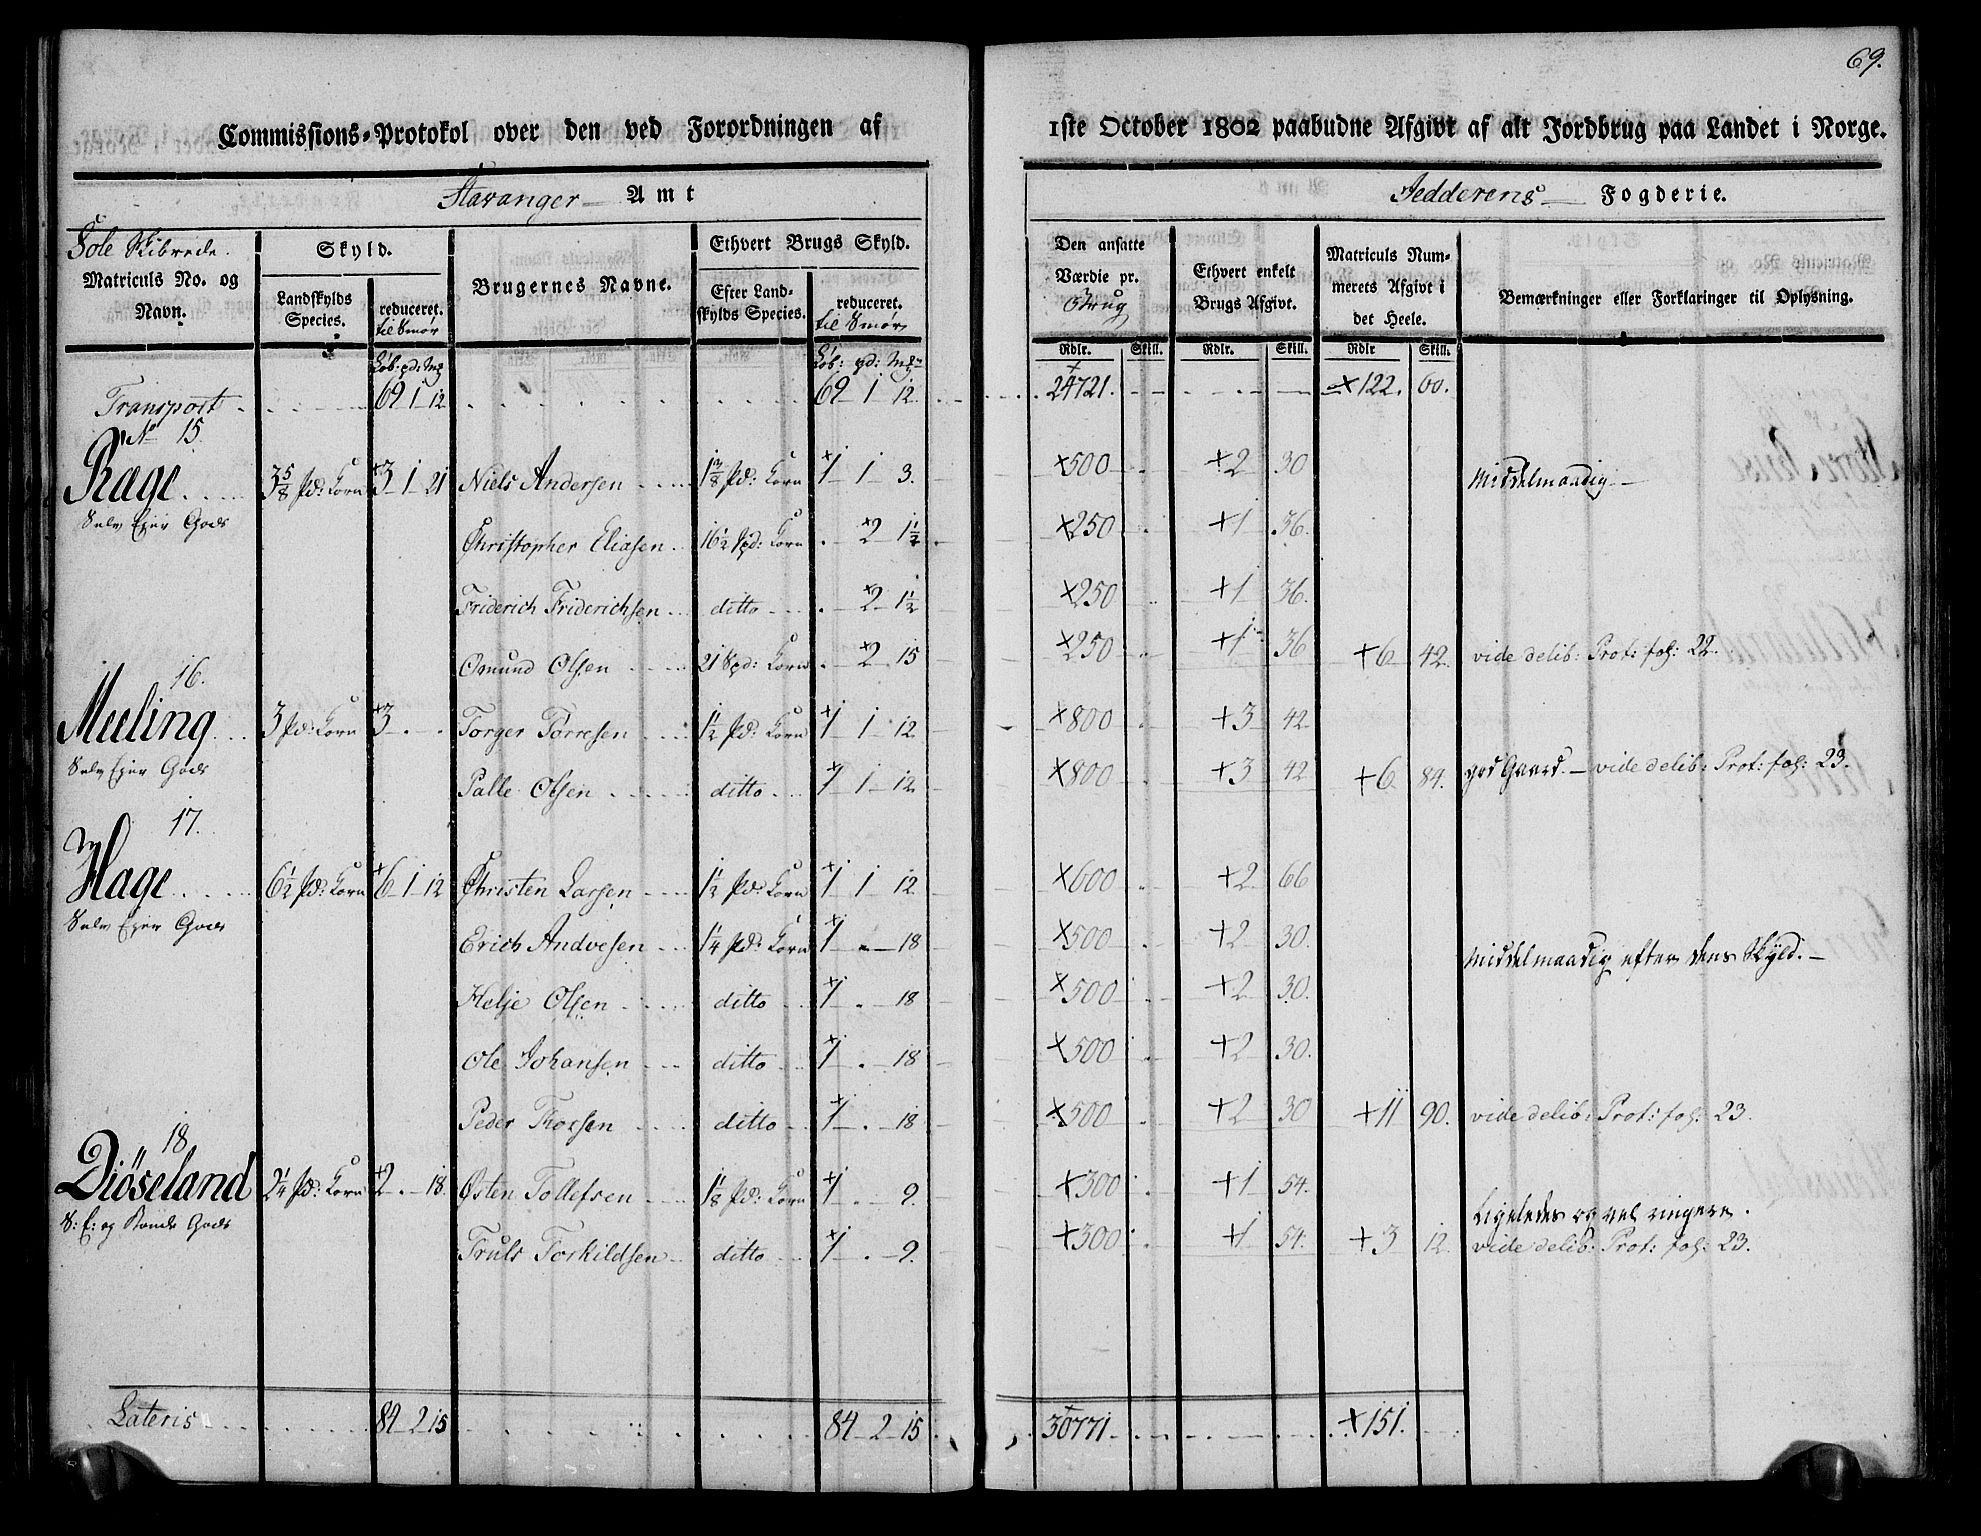 69.
Commissions-Protokol over den ved Forordningen af 1ste October 1802 paabudne Afgivt af alt Jordbrug paa Landet i Norge.
Stavanger Amt Jedderens Fogderie.
Sole Skibrede.
Matriculs No. og Navn.
Skyld.
Landskylds Species.
reduceret. til Smør
Brugernes Navne.
Ethvert Brugs Skyld.
Efter Landskylds Species.
reduceret. til Smør
Den ansatte Værdie pr. Brug
Ethvert enkelt Brugs Afgivt.
Matriculs Nummerets Afgivt i det Heele.
Bemærkninger eller Forklaringer til Oplysning.
Lób: pd: Mk Lób: pd: Mk Rdlr. Skill. Rdlr. Skill. Rdlr Skill.
Transport 69 1 12 69 1 12 24721. 122. 60.
No 15.
Rage 3 5/8 Pd: Korn 3 1 21 Niels Andersen 1 3/8 Pd: Korn 1 1 3. 500 2 30 Middelmaadig
Selv Ejer Gods
Christopher Eliasen 16 1/2 Spd: Korn 2 1 1/2 250 1 36.
Friderich Friderichsen ditto 2 1 1/2 250 1 36.
Osmund Olsen 21 Spd: Korn 2 15 250 1 36 6 42. vide delib: Prot: fol: 22.
16.
Meeling 3 Pd: Korn 3 Torger Torresen 1 1/2 Pd: Korn 1 1 12 800 3 42
Selv Ejer Gods
Palle Olsen ditto 1 1 12 800 3 42 6 84. god Gaard. vide delib: Prot: fol: 23.
17.
Hage 6 1/2 Pd: Korn 6 1 12 Christen Larsen 1 1/2 Pd: Korn 1 1 12 600 2 66
Selv Ejer Gods
Erich Andvesen 1 1/4 Pd: Korn 1 18 500 2 30. Middelmaadig efter dens Skyld.
Helje Olsen ditto 1 18 500 2 30.
Ole Johansen ditto 1 18 500 2 30.
Peder Thorsen ditto 1 18 500 2 30 11 90. vide delib: Prot: fol: 23.
18
Diöseland 2 1/4 Pd: Korn 2 18. Østen Tollefsen 1 1/8 Pd: Korn 1 9. 300 1 54. Ligeledes og vel ringere.
S: E: og Gods
Truls Torkildsen ditto 1 9. 300 1 54. 3 12. vide delib: Prot: fol: 23.
Lateris 84 2 15 84 2 15 30771 151.